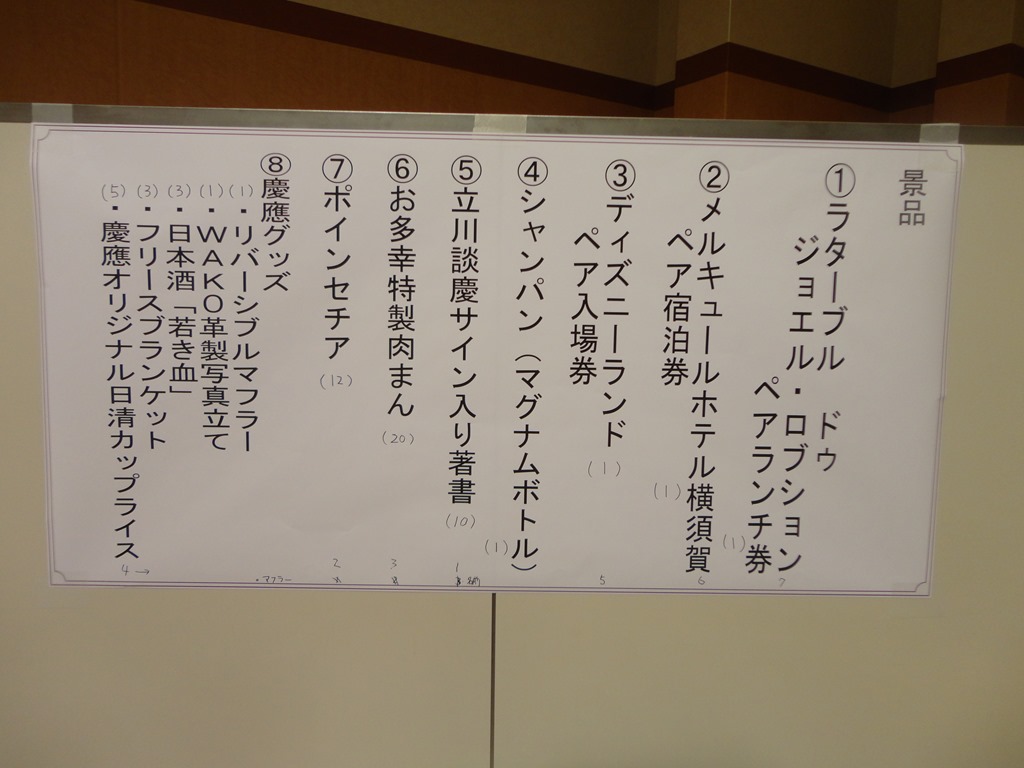 景品
①ラターブル　ドゥ
ジョエル・ロブション
ペアランチ券
(1)
②メルキュールホテル横須賀
ペア宿泊券
(1)
③ディズニーランド
(1)
ペア入場券
④シャンパン（マグナムボトル）
(1)
⑤立川談慶サイン入り著書
(10)
⑥お多幸特製肉まん
(20)
⑦ポインセチア
(12)
⑧慶應グッズ
(1)・リバーシブルマフラー
(1)・ＷＡＫＯ革製写真立て
(3)・日本酒「若き血」
(3)・フリースブランケット
(5)・慶應オリジナル日清カップライス
7
6
5
1
3
2
・マフラー
4→